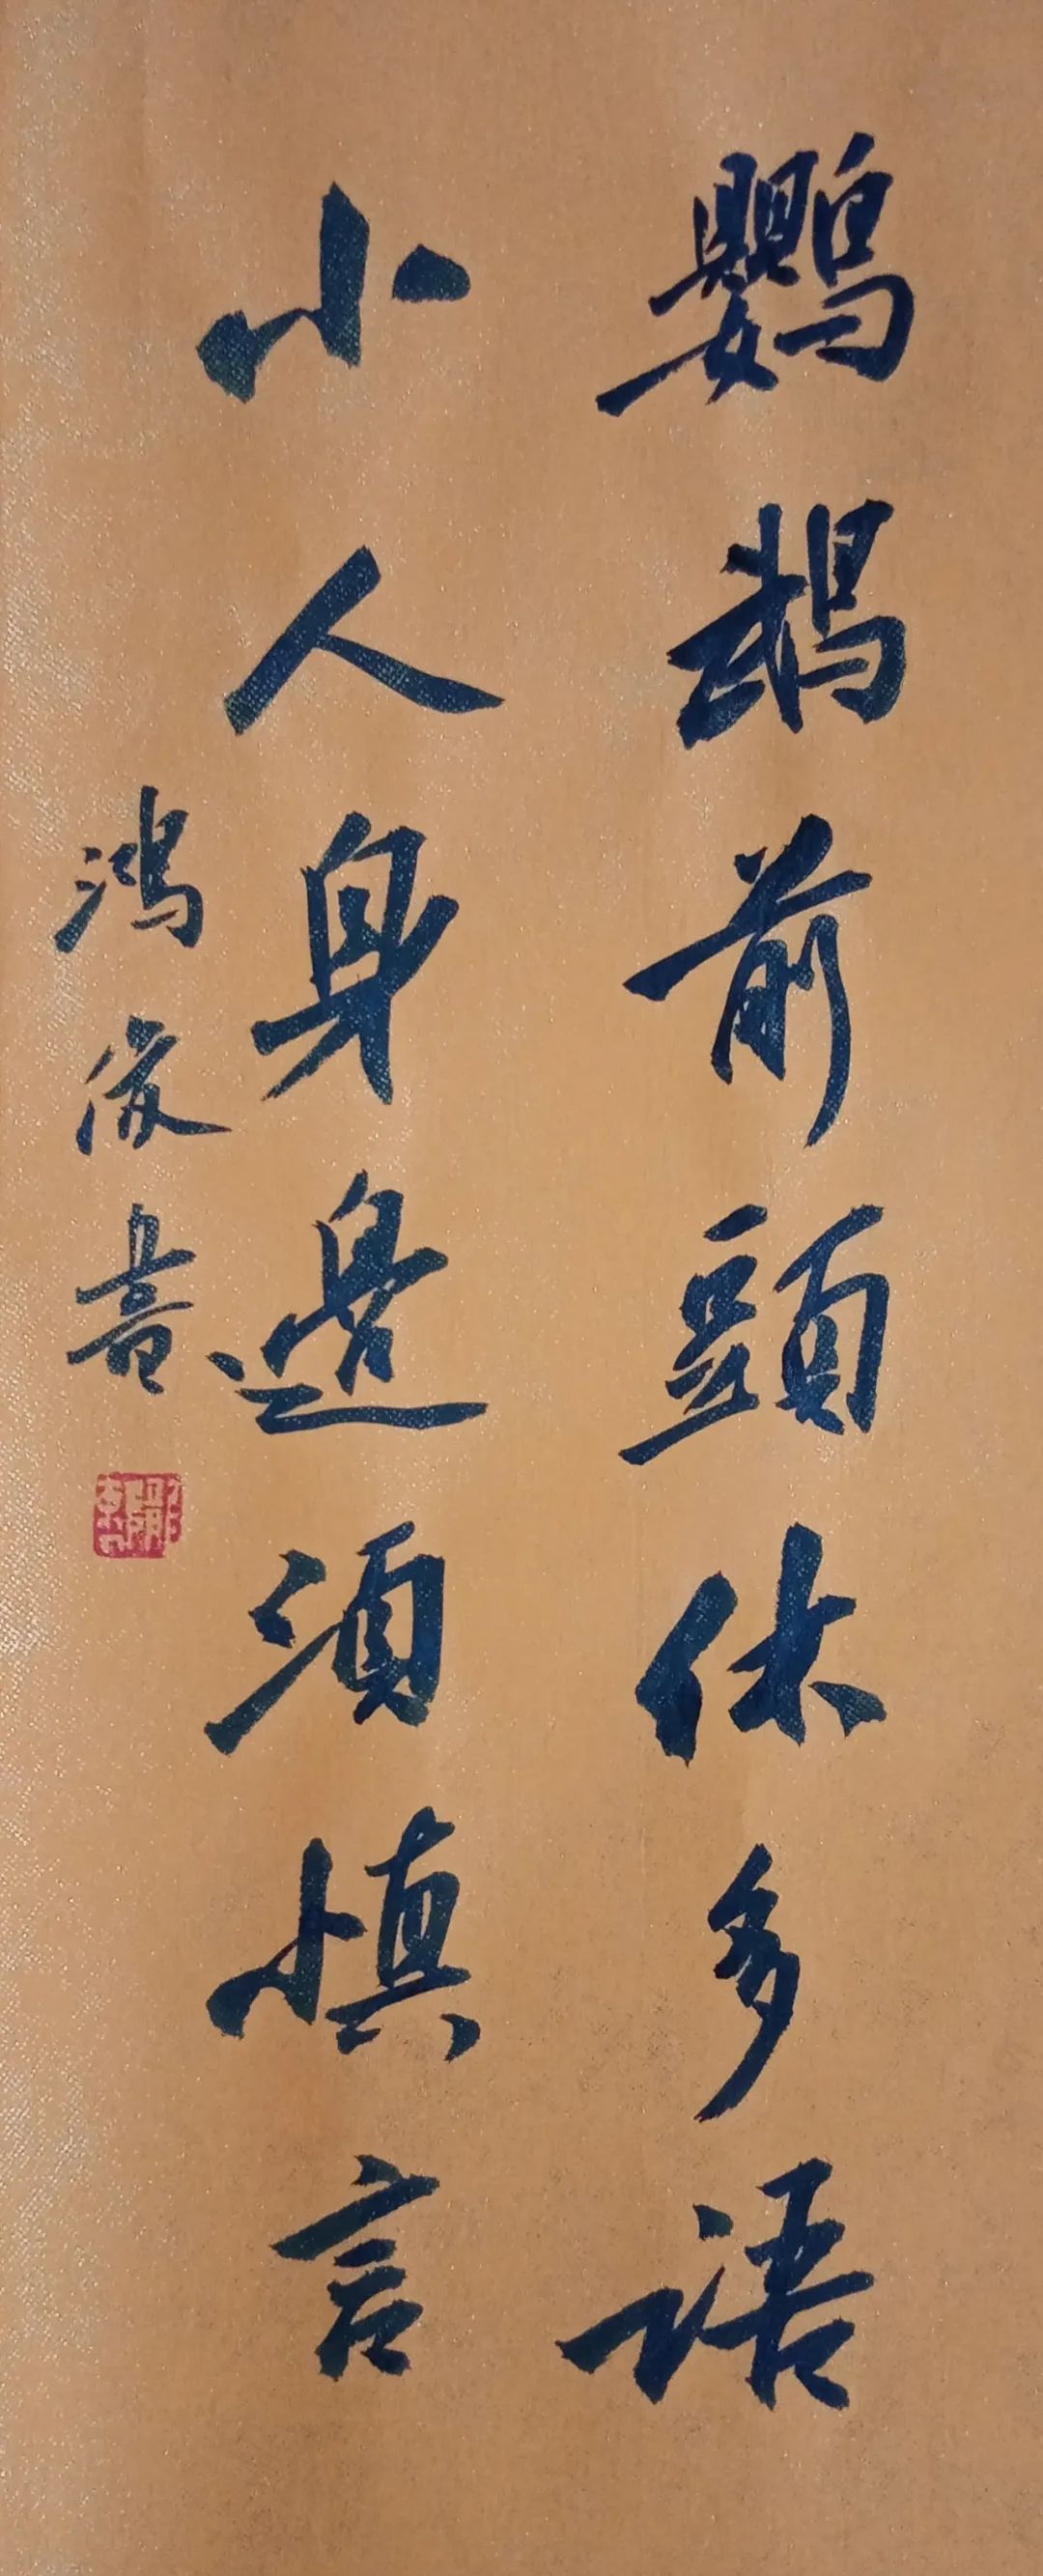 鸚鵡前頭休多语
小人身邊須慎言
鴻俊書